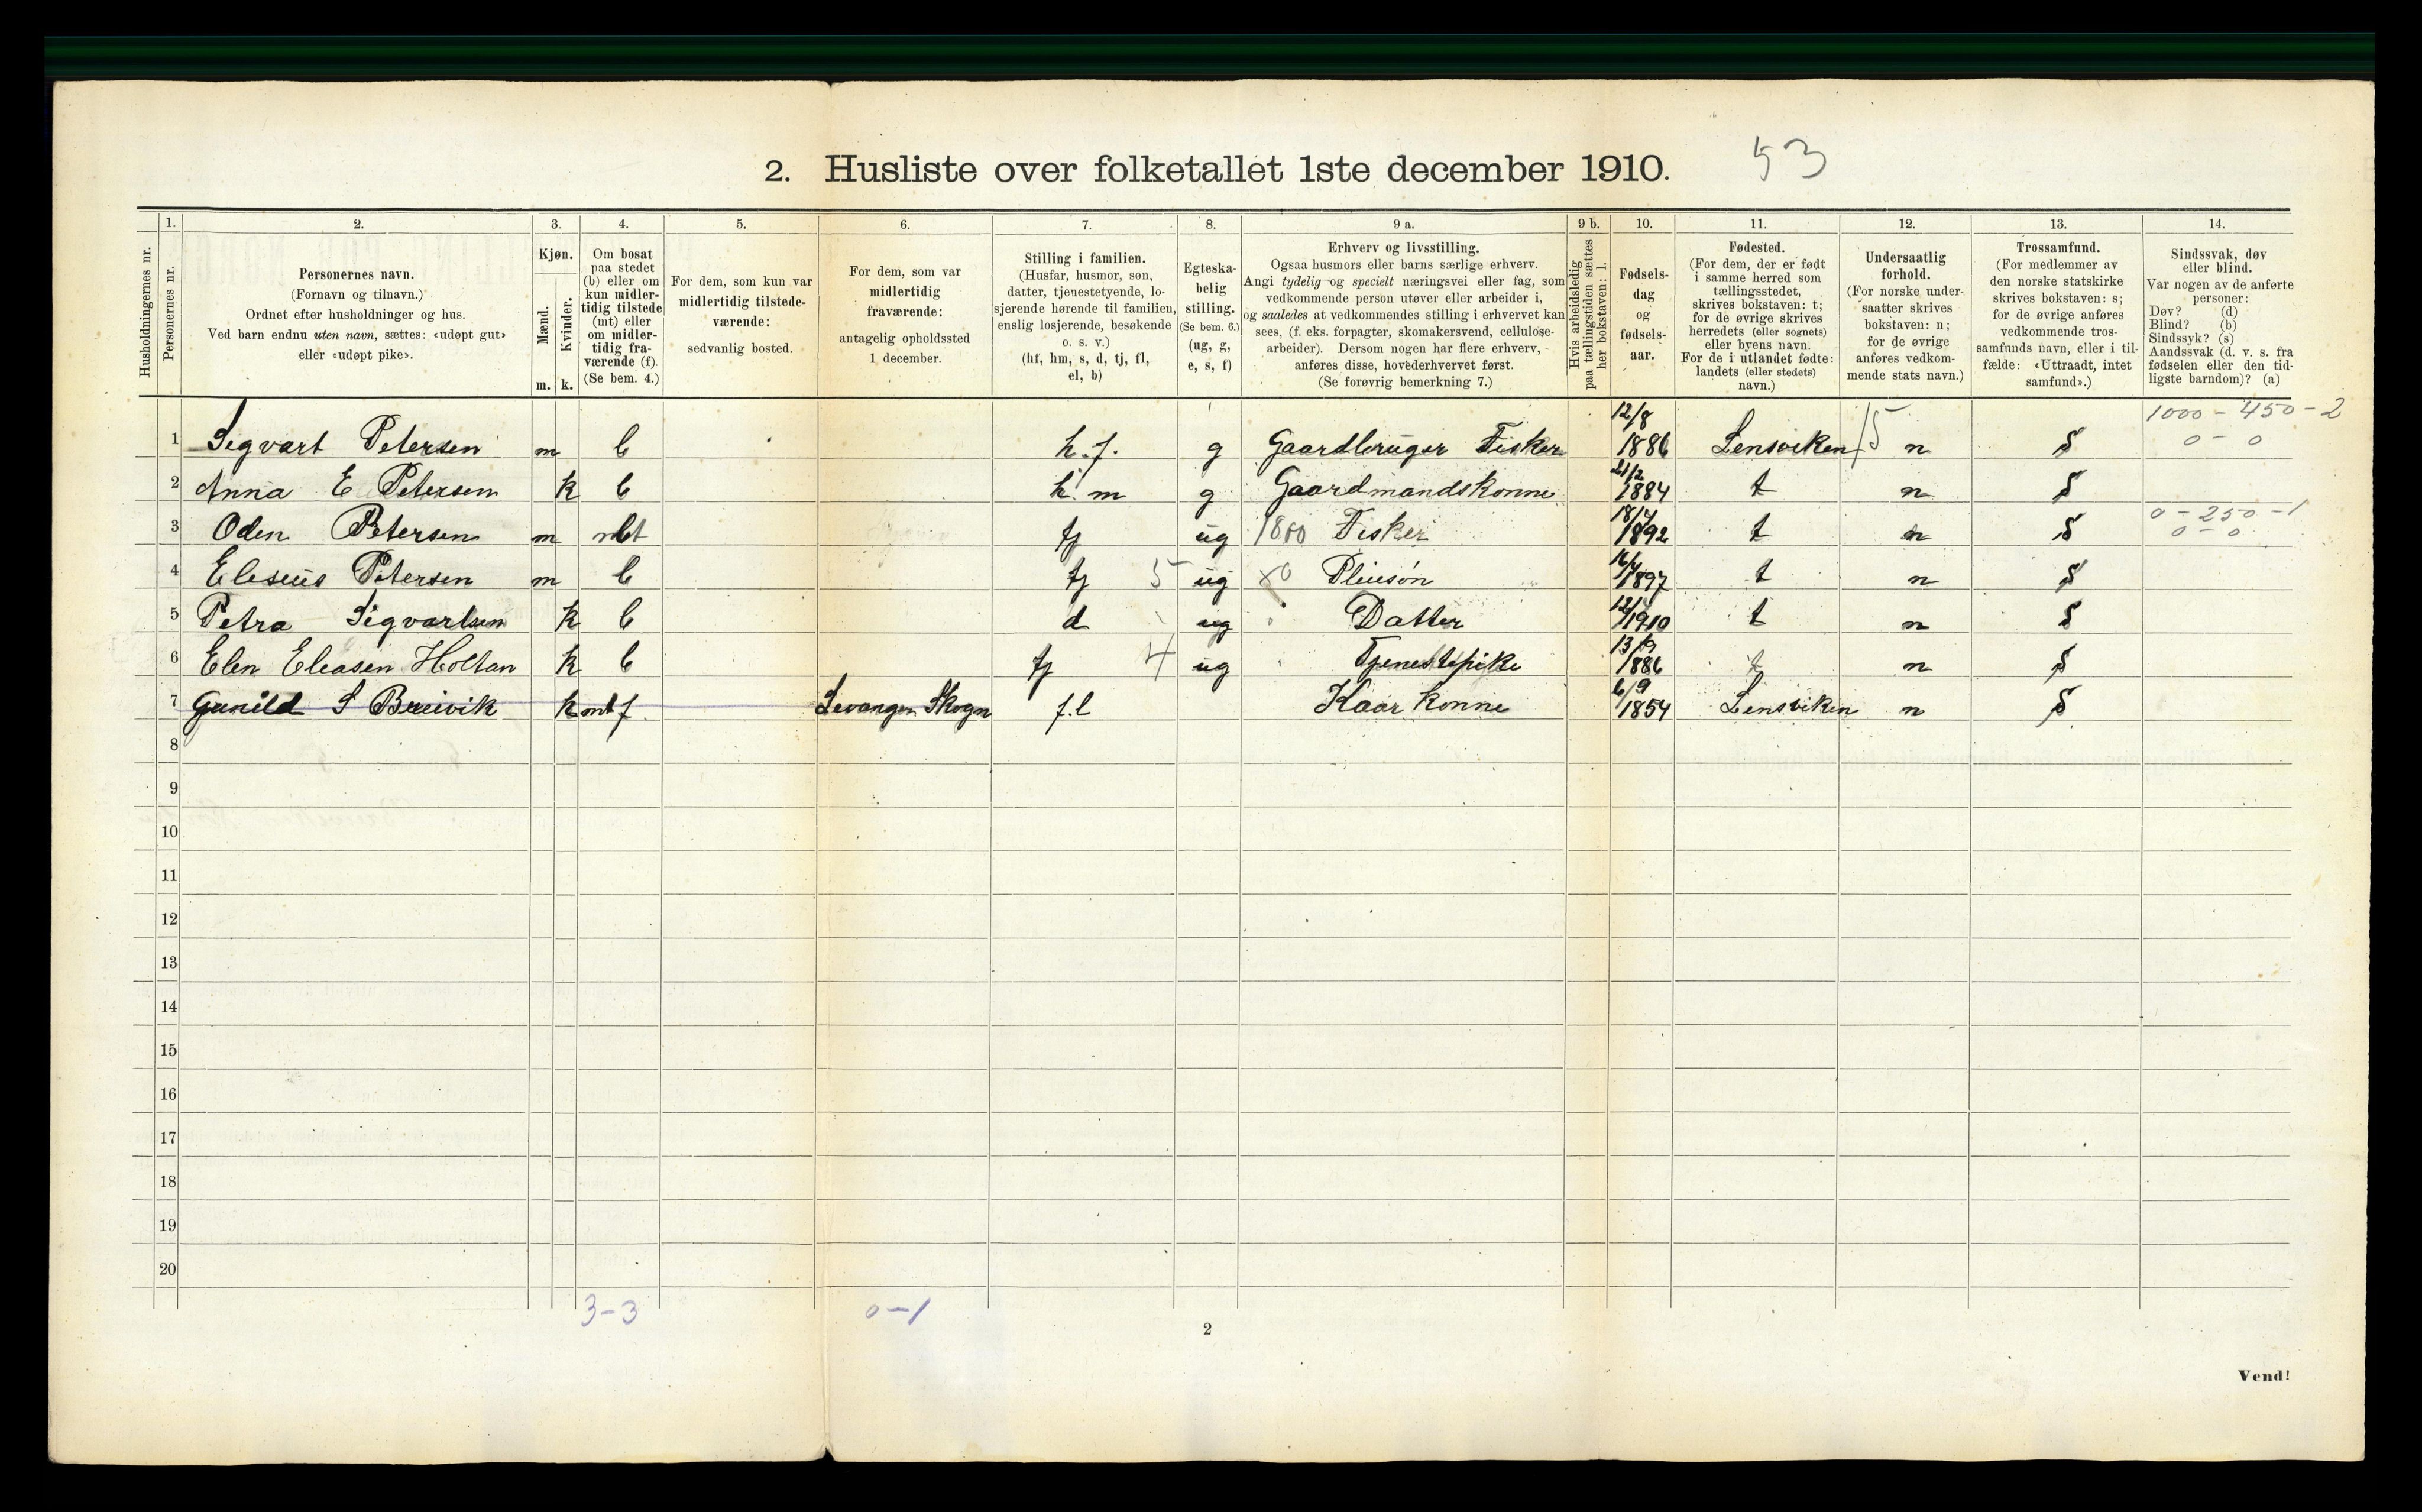 2. Husliste over folketallet 1ste december 1910. 53
Husholdningernes nr.
1.
Personernes nr.
2.
Personernes navn.
(Fornavn og tilnavn.)
Ordnet efter husholdninger og hus.
Ved barn endnu uten navn, sættes: «udøpt gut»
eller «udøpt pike».
3.
Kjøn.
Mænd.
Kvinder.
m. k.
4.
Om bosat
paa stedet
(b) eller om
kun midler-
tidig tilstede
(mt) eller
om midler-
tidig fra-
værende (f).
(Se bem. 4.)
5.
For dem, som kun var
midlertidig tilstede-
værende:
sedvanlig bosted.
6.
For dem, som var
midlertidig
fraværende:
antagelig opholdssted
1 december.
7.
Stilling i familien.
(Husfar, husmor, søn,
datter, tjenestetyende, lo-
sjerende hørende til familien,
enslig losjerende, besøkende
o. s. v.)
(hf, hm, s, d, tj, fl,
el, b)
8.
Egteska-
belig
stilling.
(Se bem. 6.)
(ug, g,
e, s, f)
9 a.
Erhverv og livsstilling.
Ogsaa husmors eller barns særlige erhverv.
Angi tydelig og specielt næringsvei eller fag, som
vedkommende person utøver eller arbeider i,
og saaledes at vedkommendes stilling i erhvervet kan
sees, (f. eks. forpagter, skomakersvend, cellulose-
arbeider). Dersom nogen har flere erhverv,
anføres disse, hovederhvervet først.
(Se forøvrig bemerkning 7.)
9 b.
Hvis arbeidsledig
paa tællingstiden sættes
her bokstaven: l.
10.
Fødsels-
dag
og
fødsels-
aar.
11.
Fødested.
(For dem, der er født
i samme herred som
tællingsstedet,
skrives bokstaven: t;
for de øvrige skrives
herredets (eller sognets)
eller byens navn.
For de i utlandet fødte:
landets (eller stedets)
navn.)
12.
Undersaatlig
forhold.
(For norske under-
saatter skrives
bokstaven: n;
for de øvrige
anføres vedkom-
mende stats navn.)
13.
Trossamfund.
(For medlemmer av
den norske statskirke
skrives bokstaven: s;
for de øvrige anføres
vedkommende tros-
samfunds navn, eller i til-
fælde: «Uttraadt, intet
samfund».)
14.
Sindssvak, døv
eller blind.
Var nogen av de anførte
personer:
Døv? (d)
Blind? (b)
Sindssyk? (s)
Aandssvak (d. v. s. fra
fødselen eller den tid-
ligste barndom)? (a)
1 Sigvart Petersen m b h.f. g Gaardbruger Fisker 12/8 1886 Lensviken 15 n S 1000 - 450 - 2
0 - 0
2 Anna E Petersen k b h m g Gaardmandskonne 21/2 1884 t n S
3 Oden Petersen m mt tj ug 1800 Fisker 1892 t n S 0 - 250 - 1
0 - 0
4 Eliseus Petersen m b tj 5 ug Pliesön 1897 t n S
5 Petra Sigvartsen k b d ug Datter 1910 t n S
6 Elen Eleasen Holtan k b tj 4 ug Tjenestepike 13/9 1886 t n S
7 Gunild S Breivik k mt f Levanger Skogn f.l Kaar konne 6/9 1854 Lensviken n S
8
9
10
11
12
13
14
15
16
17
18
19
20
3-3 0-1
2
Vend!